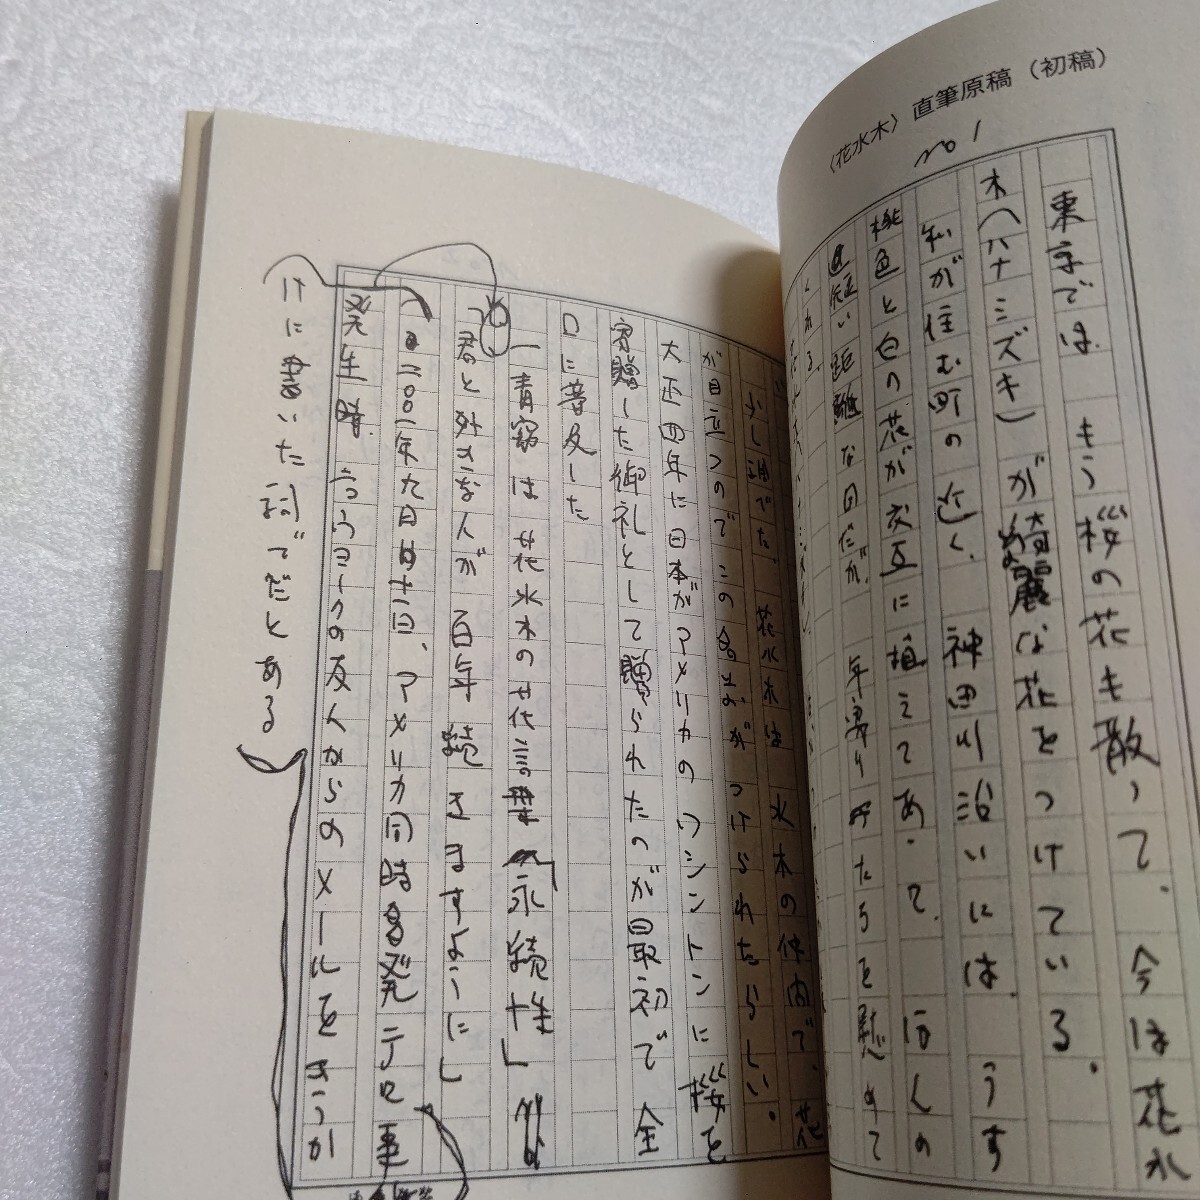 〈花水木〉直筆原稿（初稿）
no 1
東京では、もう桜の花も散って、今は花水
木（ハナミズキ）が綺麗な花をつけている。
私が住む町の近く、神田川沿いには、うす
桃色と白の花が交互に植えてあって、ほんの
短い距離な のだが、年寄り たちを慰めて
くれる。
少し調べた。花水木は 水木の体内で、花
が目立つのでこの名まえがつけられたらしい。
大正四年に日本がアメリカのワシントンに桜を
寄贈した御礼として贈られたのが最初で 全
口に普及した
一青窈は花水木の花言葉「永続性」
「君と好きな人が 百年続きますように」
二〇〇一年九月十一日、アメリカ同時多発テロ事
発生時、ニューヨークの友人からのメールをきっか
けに書いた詞でだとある